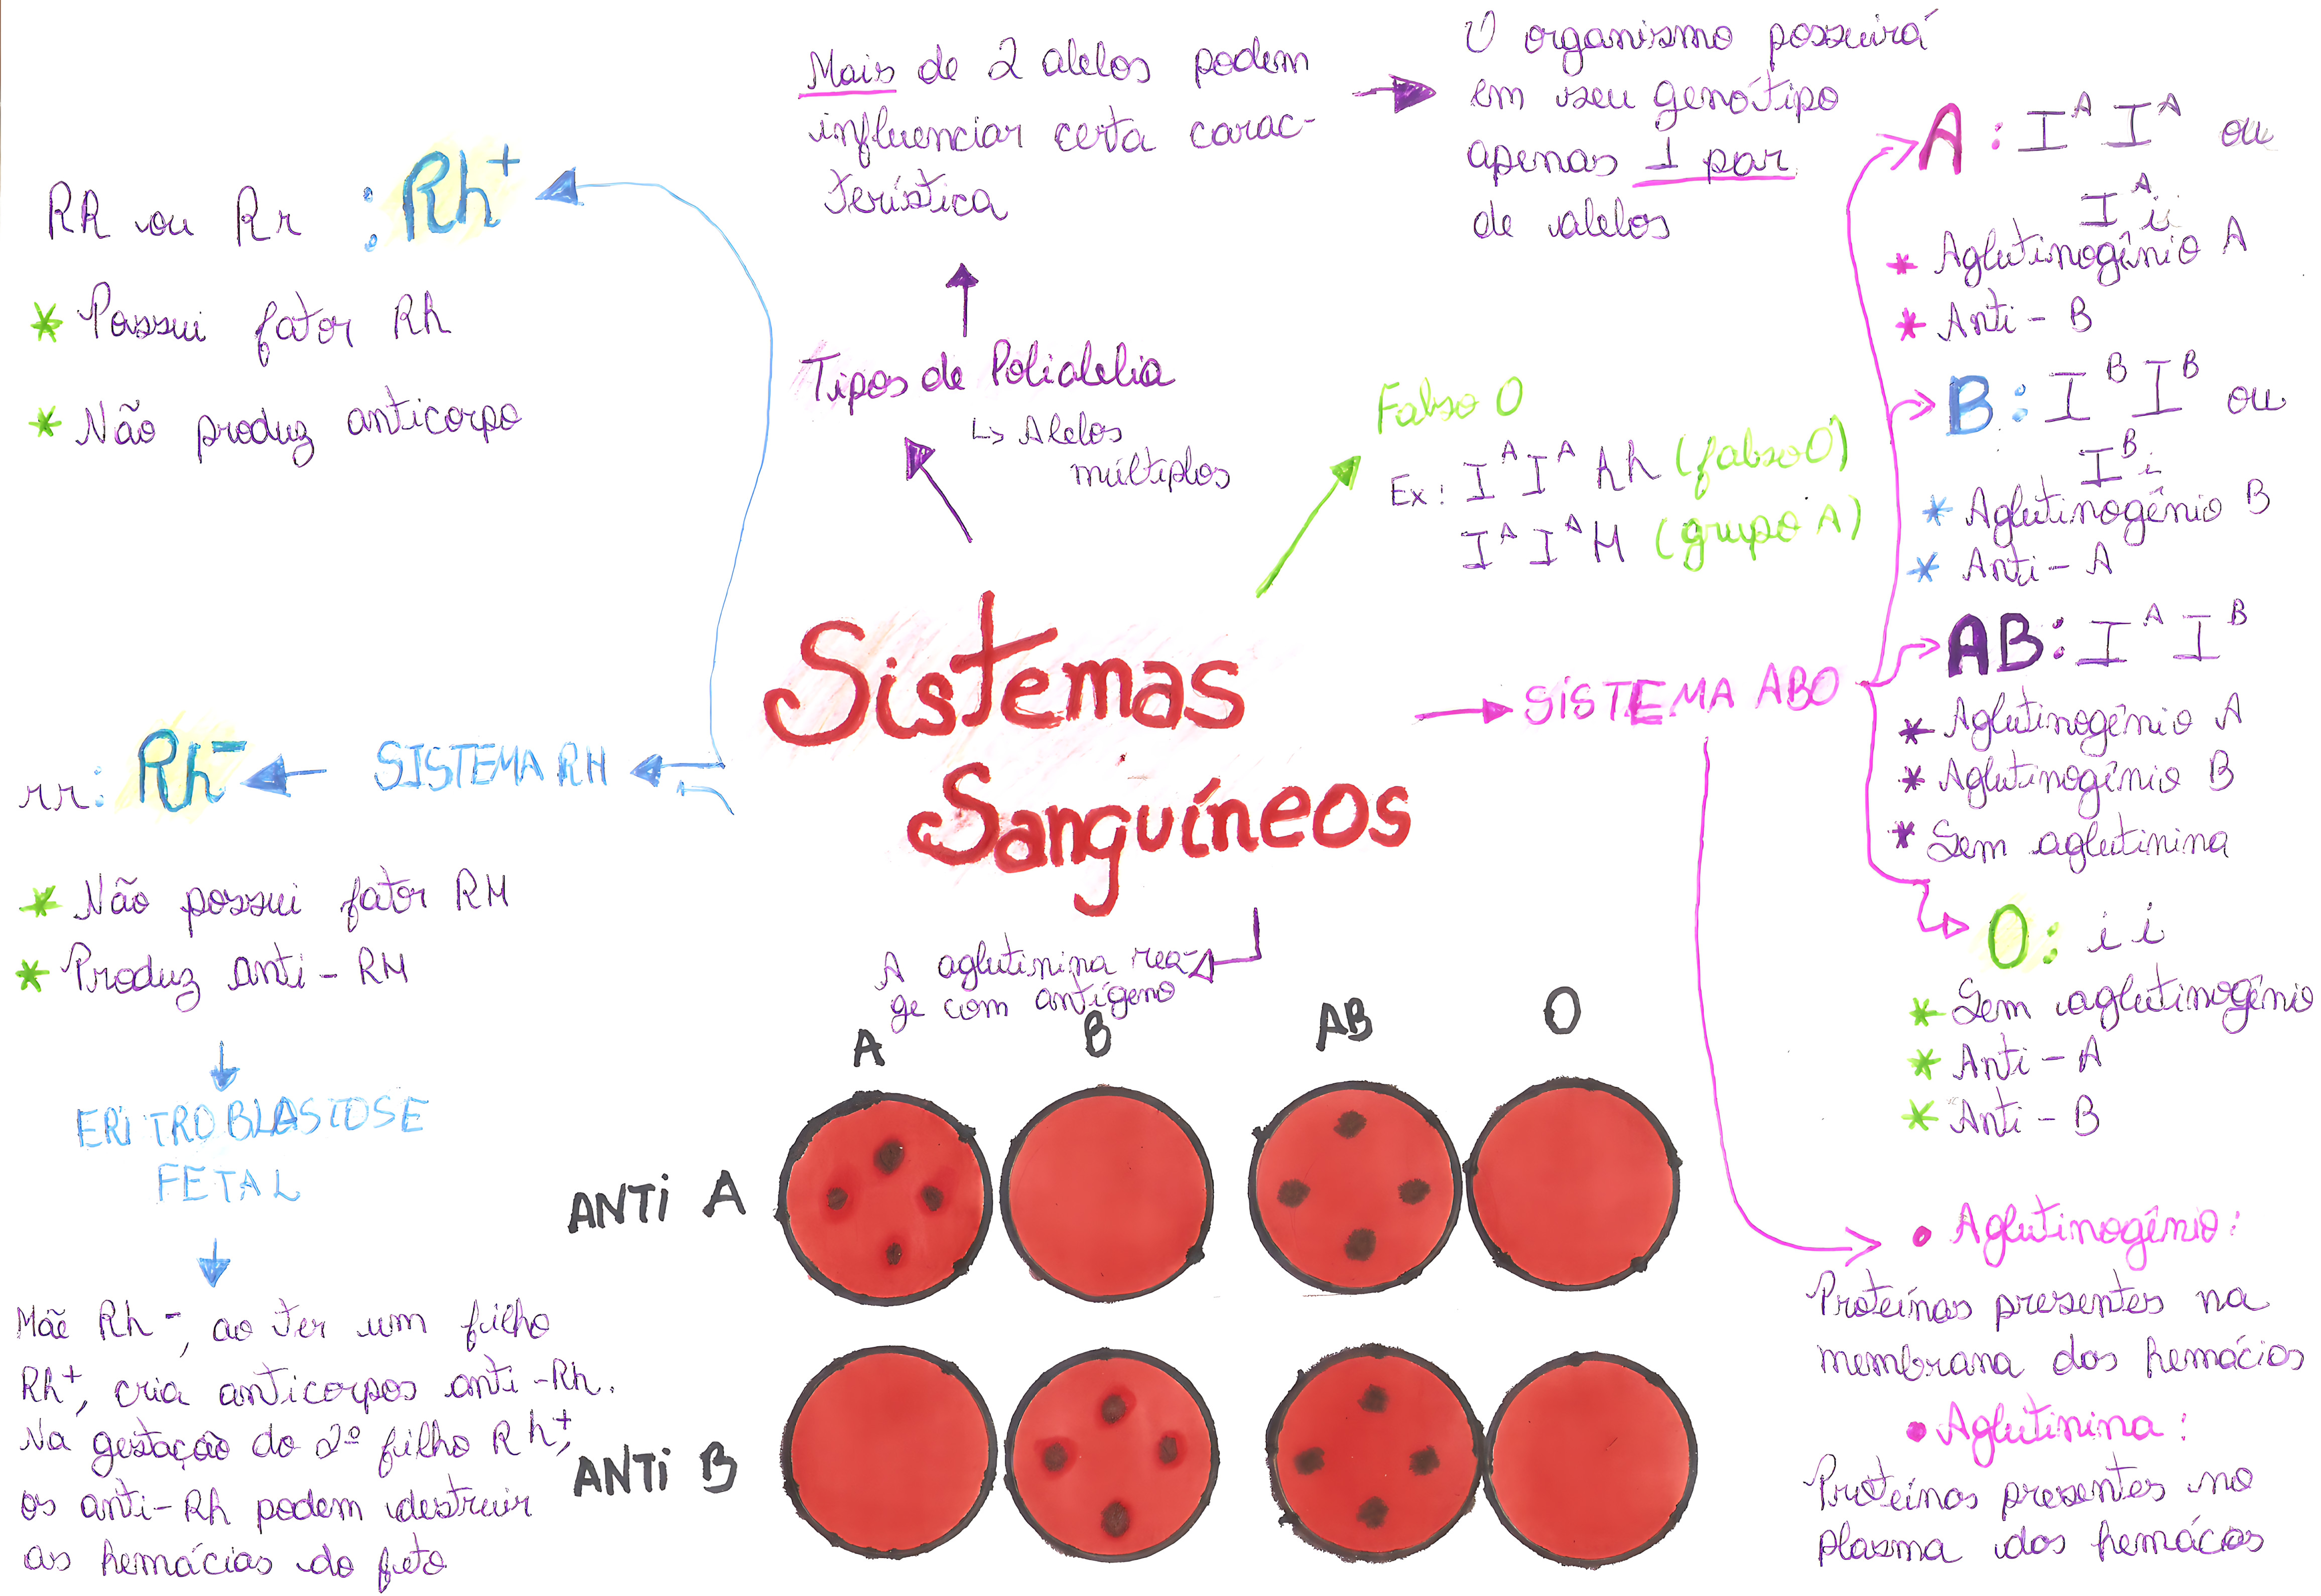 Mais de 2 alelos podem
influenciar certa carac-
terística
O organismo possuirá
em seu genótipo
apenas 1 par
de alelos
Tipos de Polialelia
↳ Alelos
múltiplos
Falso O
Ex: I^A I^A hh (falso O)
I^A I^A H (grupo A)
Sistemas
Sanguíneos
RR ou Rr : Rh+
* Possui fator Rh
* Não produz anticorpo
SISTEMA RH
rr: Rh-
* Não possui fator RH
* Produz anti-RH
ERITROBLASTOSE
FETAL
Mãe Rh-, ao ter um filho
Rh+, cria anticorpos anti-Rh.
Na gestação do 2º filho Rh+,
os anti-Rh podem destruir
as hemácias do feto
SISTEMA ABO
A: I^A I^A ou
I^A i
* Aglutinogênio A
* Anti-B
B: I^B I^B ou
I^B i
* Aglutinogênio B
* Anti-A
AB: I^A I^B
* Aglutinogênio A
* Aglutinogênio B
* Sem aglutinina
O: i i
* Sem aglutinogênio
* Anti-A
* Anti-B
• Aglutinogênio:
Proteínas presentes na
membrana das hemácias
• Aglutinina:
Proteínas presentes no
plasma das hemácias
A aglutinina rea-
ge com antígeno
A B AB O
ANTI A
ANTI B